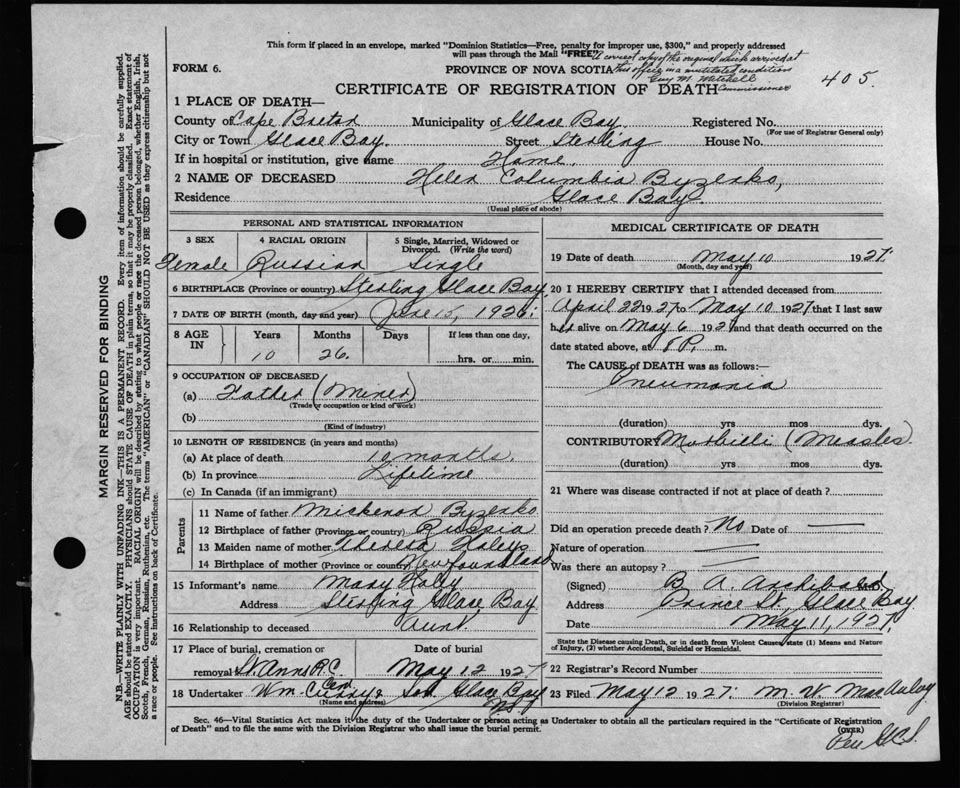 This form if placed in an envelope, marked "Dominion Statistics—Free, penalty for improper use, $300," and properly addressed
will pass through the Mail "FREE"
A correct copy of the original which arrived at
this office in a mutilated condition
Guy M. Mitchell
Commissioner
405.
FORM 6.
PROVINCE OF NOVA SCOTIA
CERTIFICATE OF REGISTRATION OF DEATH
1 PLACE OF DEATH—
County of Cape Breton Municipality of Glace Bay Registered No.
(For use of Registrar General only)
City or Town Glace Bay. Street Sterling House No.
If in hospital or institution, give name Home.
2 NAME OF DECEASED Helen Columbia Byzesko,
Residence Glace Bay.
(Usual place of abode)
PERSONAL AND STATISTICAL INFORMATION
3 SEX 4 RACIAL ORIGIN 5 Single, Married, Widowed or
Divorced. (Write the word)
Female Russian Single
6 BIRTHPLACE (Province or country) Sterling Glace Bay,
7 DATE OF BIRTH (month, day and year) June 15, 1926.
8 AGE IN Years Months Days If less than one day,
10 26. hrs. or min.
9 OCCUPATION OF DECEASED
(a) Father (Miner)
(Trade or occupation or kind of work)
(b)
(Kind of industry)
10 LENGTH OF RESIDENCE (in years and months)
(a) At place of death 10 months.
(b) In province Lifetime
(c) In Canada (if an immigrant)
Parents
11 Name of father Byzesko
12 Birthplace of father (Province or country) Russia
13 Maiden name of mother Theresa
14 Birthplace of mother (Province or country) Newfoundland
15 Informant's name Mary
Address Sterling Glace Bay
16 Relationship to deceased Aunt.
17 Place of burial, cremation or Date of burial
removal St. Anns R.C. May 12 1927
18 Undertaker Wm. & Son Glace Bay
(Name and address) NS
MEDICAL CERTIFICATE OF DEATH
19 Date of death May 10 1927.
(Month, day and year)
20 I HEREBY CERTIFY that I attended deceased from
April 22 1927 to May 10 1927 that I last saw
her alive on May 6 1927 and that death occurred on the
date stated above, at 8 P. m.
The CAUSE OF DEATH was as follows:—
Pneumonia
(duration) yrs mos dys.
CONTRIBUTORY Morbilli (Measles).
(duration) yrs mos dys.
21 Where was disease contracted if not at place of death?
Did an operation precede death? No Date of —
Nature of operation —
Was there an autopsy? —
(Signed) B A. Archibald M.D.
Address Prince St. Glace Bay.
Date May 11, 1927.
State the Disease causing Death, or in death from Violent Causes, state (1) Means and Nature
of Injury, (2) whether Accidental, Suicidal or Homicidal.
22 Registrar's Record Number
23 Filed May 12 1927. M. W. MacAulay
(Division Registrar)
Sec. 46—Vital Statistics Act makes it the duty of the Undertaker or person acting as Undertaker to obtain all the particulars required in the "Certificate of Registration
of Death" and to file the same with the Division Registrar who shall issue the burial permit.
(OVER)
Per
MARGIN RESERVED FOR BINDING
N.B.—WRITE PLAINLY WITH UNFADING INK—THIS IS A PERMANENT RECORD. Every item of information should be carefully supplied.
AGE should be stated EXACTLY. PHYSICIANS should STATE CAUSE OF DEATH in plain terms, so that it may be properly classified. Exact statement of
OCCUPATION is very important. RACIAL ORIGIN will be described by stating to what people or race the deceased person belonged, whether English, Irish,
Scotch, French, German, Russian, Ruthenian, etc. The terms "AMERICAN" or "CANADIAN" SHOULD NOT BE USED as they express citizenship but not
a race or people. See instructions on back of Certificate.